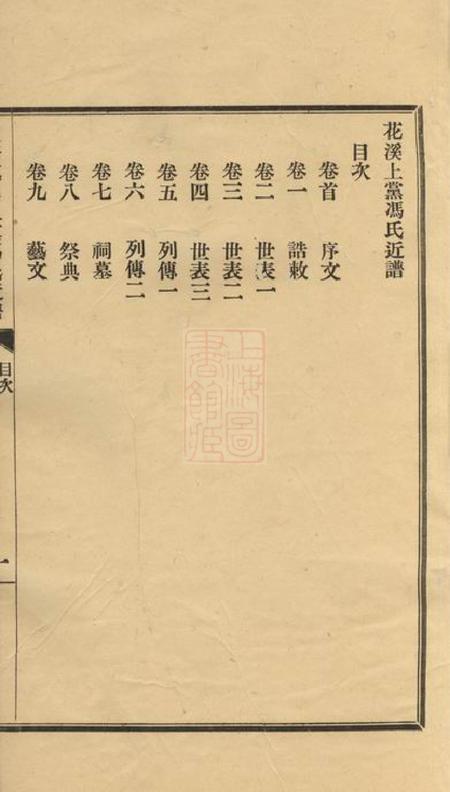 花溪上黨馮氏近譜
目次
卷首 序文
卷一 誥敕
卷二 世表一
卷三 世表二
卷四 世表三
卷五 列傳一
卷六 列傳二
卷七 祠墓
卷八 祭典
卷九 藝文
目次
一
上海圖書館藏